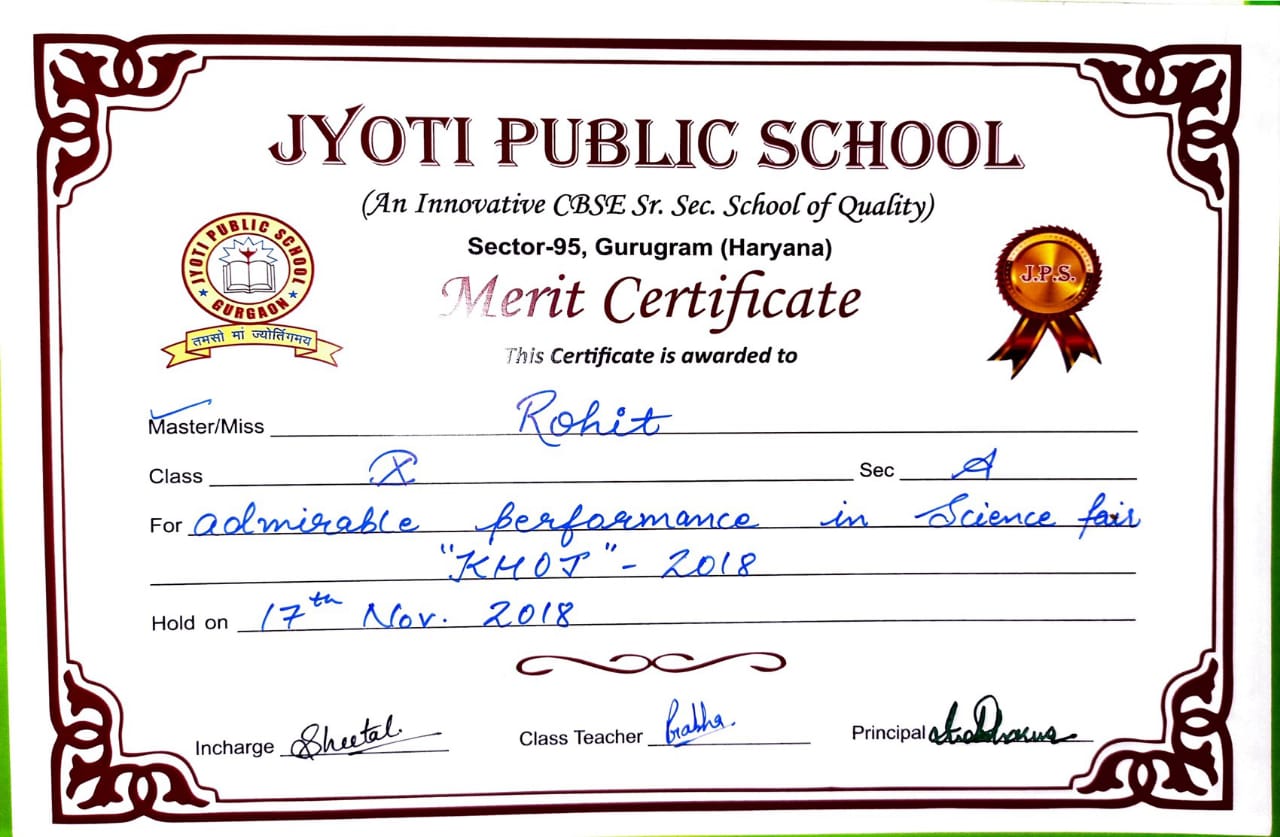 JYOTI PUBLIC SCHOOL
(An Innovative CBSE Sr. Sec. School of Quality)
Sector-95, Gurugram (Haryana)
JYOTI PUBLIC SCHOOL
GURGAON
तमसो मां ज्योर्तिगमय
J.P.S.
Merit Certificate
This Certificate is awarded to
Master/Miss Rohit
Class X Sec A
For admirable performance in Science fair
"KHOJ" - 2018
Hold on 17th Nov. 2018
Incharge Sheetal. Class Teacher Prabha. Principal